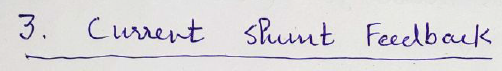 3. Current Shunt Feedback